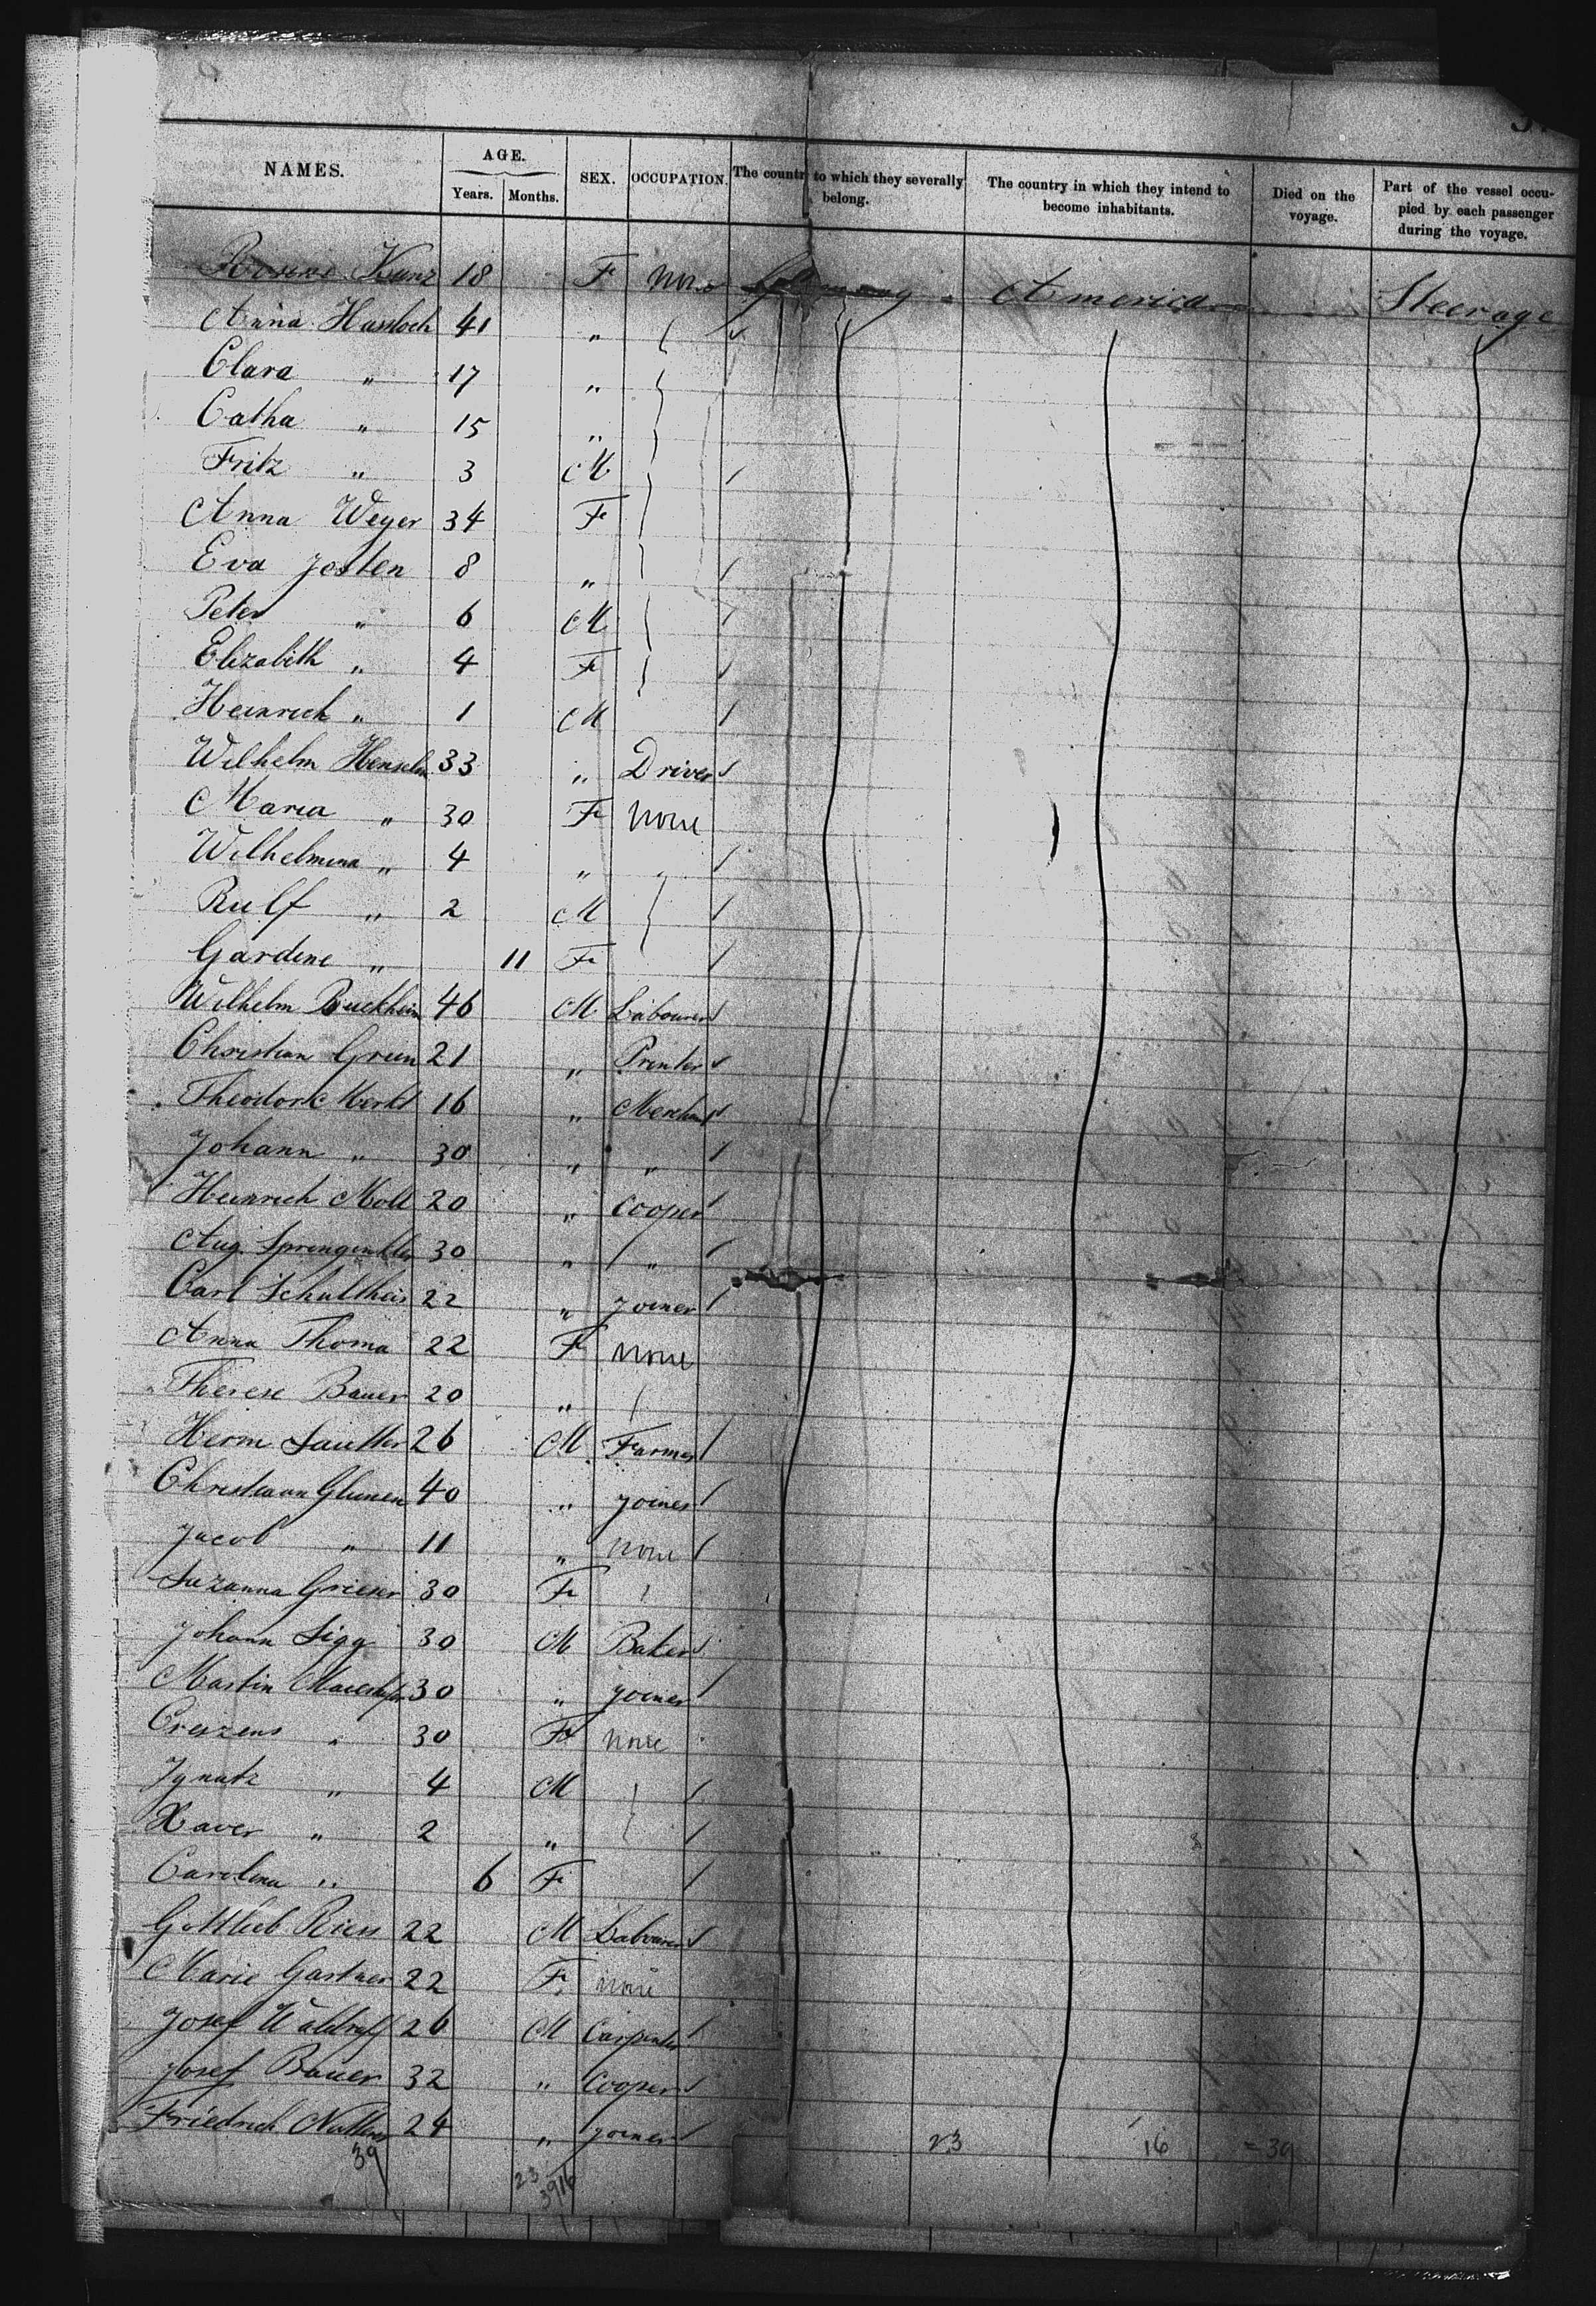 NAMES. AGE. Years. Months. SEX. OCCUPATION. The country to which they severally belong. The country in which they intend to become inhabitants. Died on the voyage. Part of the vessel occupied by each passenger during the voyage.
Kunz 18 F None Germany America Steerage
Anna Hassloch 41 „
Clara „ 17 „
Catha „ 15 „
Fritz „ 3 M
Anna Weyer 34 F
Eva Josten 8 „
Peter „ 6 M
Elizabeth „ 4 F
Heinrich „ 1 M
Wilhelm 33 „ Driver
Maria „ 30 F None
Wilhelmina „ 4 „ „
Rulf „ 2 M
Gardine „ 11 F
Wilhelm 46 M Labourer
Christian Grün 21 „ Printer
Theodor 16 „ Merchant
Johann „ 30 „ „
Heinrich Moll 20 „ Cooper
Aug. 30 „ „
Carl Schultheis 22 „ Joiner
Anna Thoma 22 F None
Therese Bauer 20 „
Herm Sautter 26 M Farmer
Christian 40 „ Joiner
Jacob „ 11 „ None
Suzanna Grieser 30 F
Johann Sigg 30 M Baker
Martin 30 „ Joiner
Creszens „ 30 F None
Ignatz „ 4 M
Xaver „ 2 „
Carolina „ 6 F
Gottlieb Riess 22 M Labourer
Marie Gartner 22 F None
Josef 26 M Carpenter
Josef Bauer 32 „ Cooper
Friedrich 24 „ Joiner
23 16 = 39
39
23
39 16